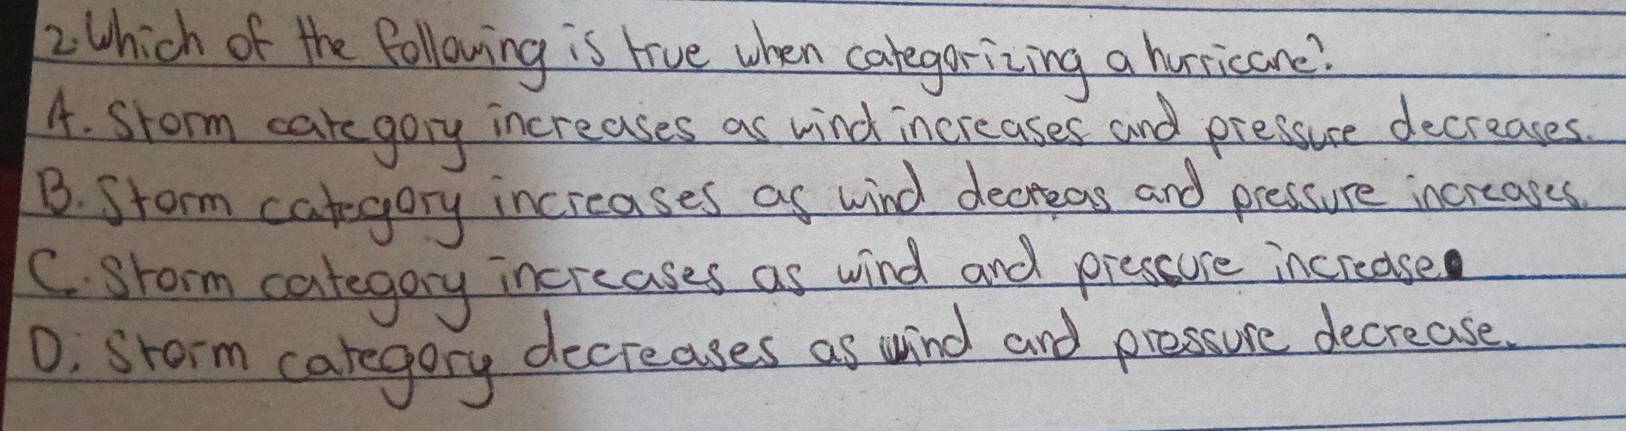 2. Which of the following is true when categorizing a hurricane?
A. Storm category increases as wind increases and pressure decreases.
B. Storm category increases as wind decreas and pressure increases.
C. Storm category increases as wind and pressure increase.
D. Storm category decreases as wind and pressure decrease.